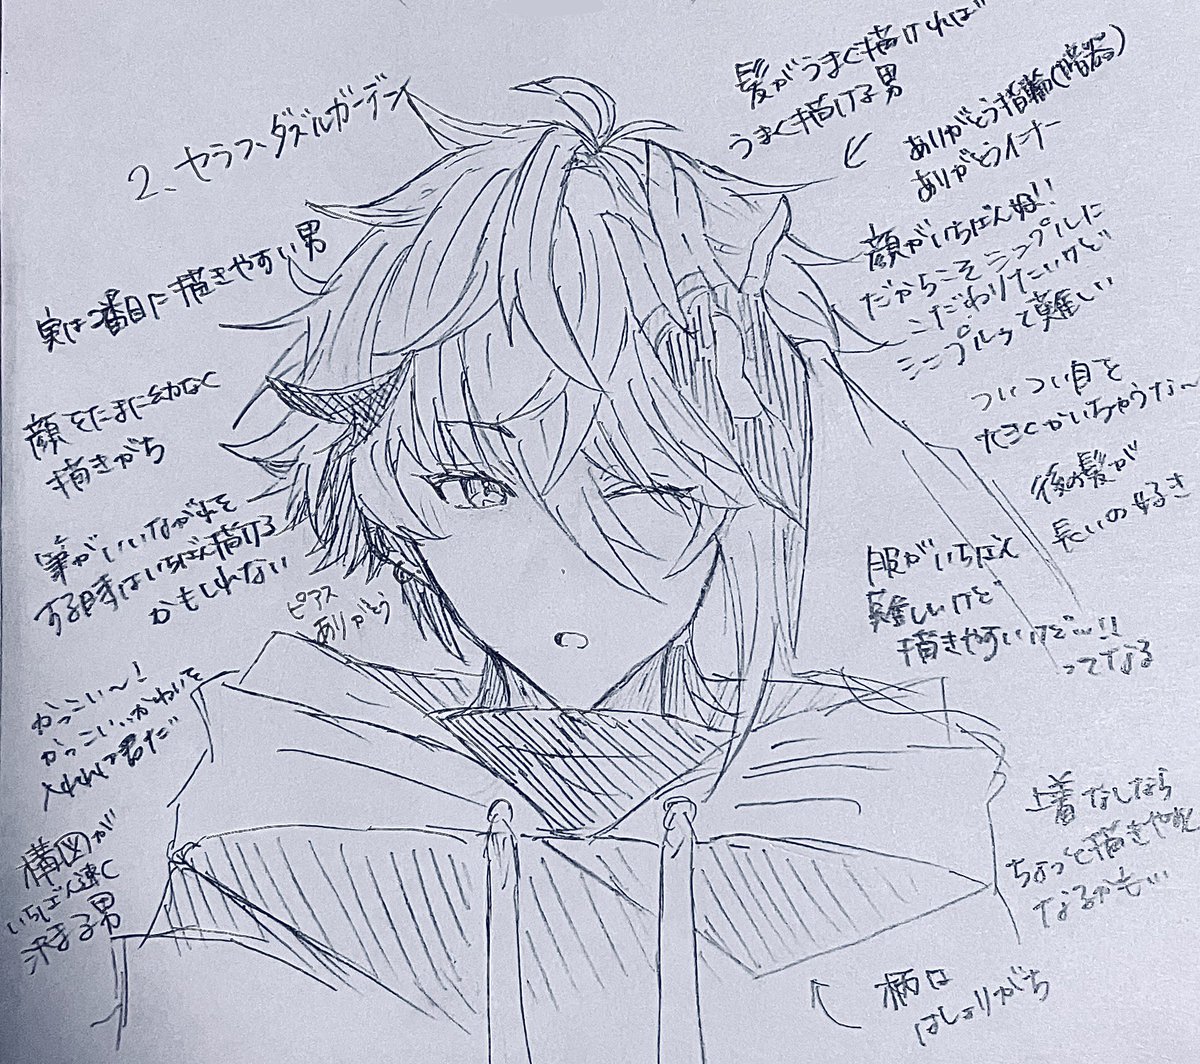 2、セラフ・ダズルガーデン
実は2番目に描きやすい男
顔をたまに幼なく
描きがち
筆がいいながれを
する時はいちばん描ける
かもしれない
ピアス
ありがとう
かっこい〜!
かっこいいかわいいを
入れれて君だ
構図が
いちばん速く
決まる男
髪がうまく描ければ
うまく描ける男
ありがとう指輪(暗器)
ありがとうイナー
顔がいちばん好!!
だからこそシンプルに
こだわりたいけど
シンプルって難しい
ついつい目を
大きくかいちゃうな〜
後の髪が
長いの好き
服がいちばん
難しいけど
描きやすいけど…!!
ってなる
上着なしなら
ちょっと描きやすく
なるかも…
柄は
はしょりがち